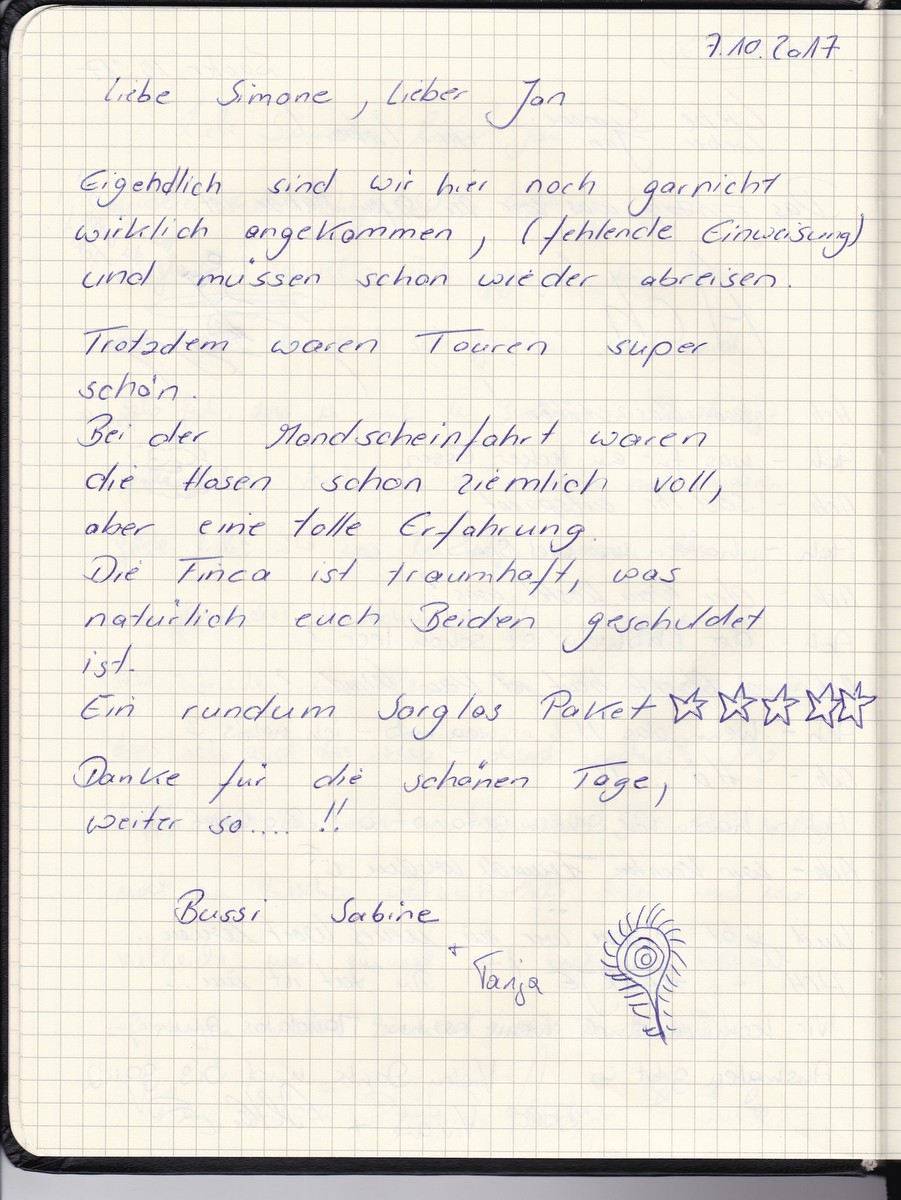 7.10.2017
Liebe Simone, Lieber Jan
Eigendlich sind wir hier noch garnicht
wirklich angekommen, (fehlende Einweisung)
und müssen schon wieder abreisen.
Trotzdem waren Touren super
schön.
Bei der Mondscheinfahrt waren
die Hosen schon ziemlich voll,
aber eine tolle Erfahrung.
Die Finca ist traumhaft, was
natürlich euch Beiden geschuldet
ist.
Ein rundum Sorglos Paket ☆☆☆☆☆
Danke für die schönen Tage,
weiter so.... !!
Bussi Sabine
+ Tanja